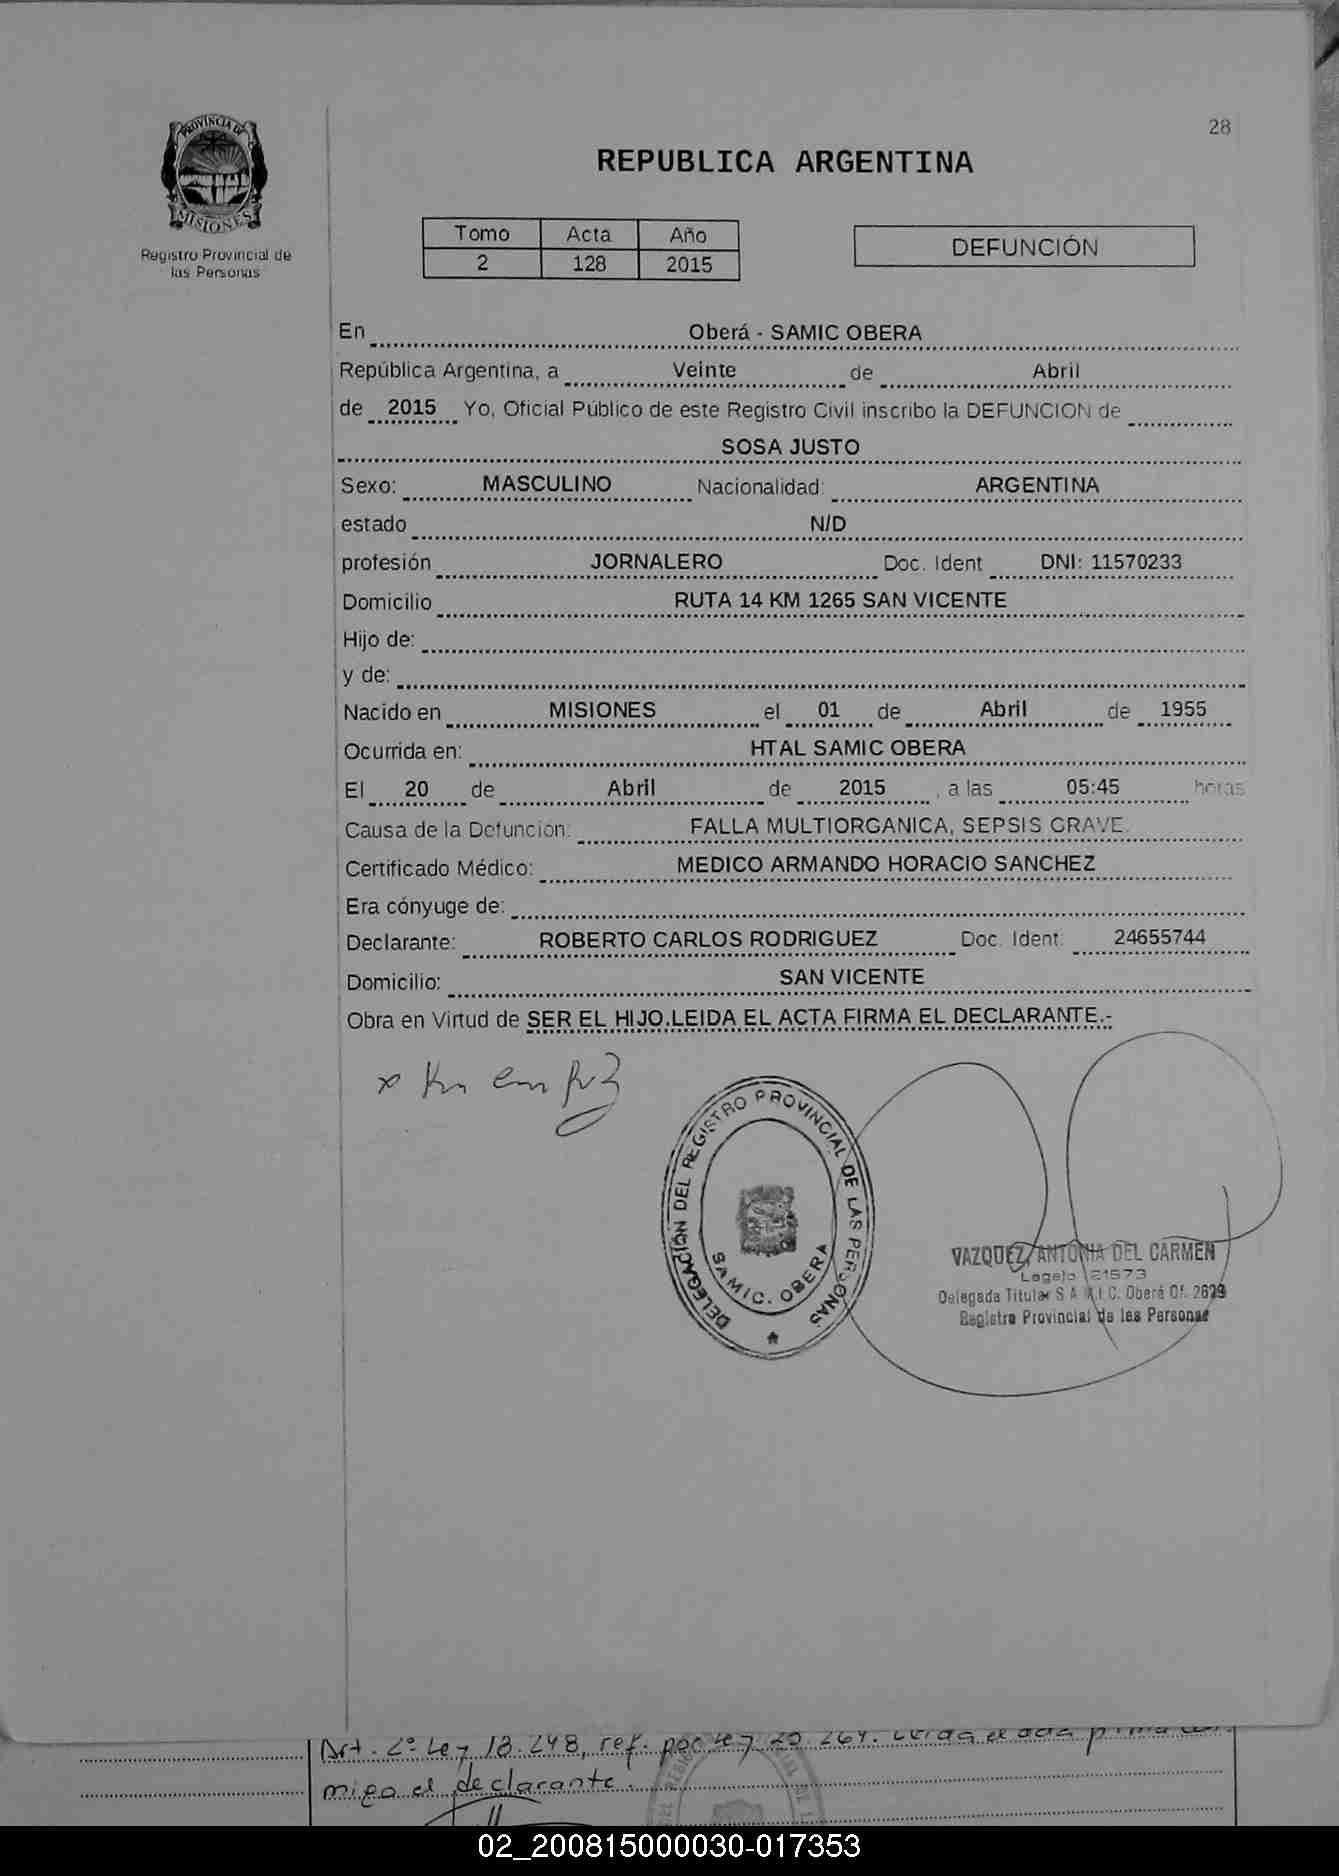 28
PROVINCIA DE
MISIONES
Registro Provincial de
las Personas
REPUBLICA ARGENTINA
Tomo Acta Año
2 128 2015
DEFUNCIÓN
En Oberá - SAMIC OBERA
República Argentina, a Veinte de Abril
de 2015 Yo, Oficial Público de este Registro Civil inscribo la DEFUNCION de
SOSA JUSTO
Sexo: MASCULINO Nacionalidad: ARGENTINA
estado N/D
profesión JORNALERO Doc. Ident DNI: 11570233
Domicilio RUTA 14 KM 1265 SAN VICENTE
Hijo de:
y de:
Nacido en MISIONES el 01 de Abril de 1955
Ocurrida en: HTAL SAMIC OBERA
El 20 de Abril de 2015 , a las 05:45 horas
Causa de la Defuncion: FALLA MULTIORGANICA, SEPSIS GRAVE.
Certificado Médico: MEDICO ARMANDO HORACIO SANCHEZ
Era cónyuge de:
Declarante: ROBERTO CARLOS RODRIGUEZ Doc. Ident: 24655744
Domicilio: SAN VICENTE
Obra en Virtud de SER EL HIJO.LEIDA EL ACTA FIRMA EL DECLARANTE.-
DELEGACIÓN DEL REGISTRO PROVINCIAL DE LAS PERSONAS
SAMIC. OBERA
VAZQUEZ, ANTONIA DEL CARMEN
Legajo 21573
Delegada Titular S.A.M.I.C. Oberá Of. 2629
Registro Provincial de las Personas
Art. 2º Ley 18.248, ref. por Ley 20.264. Leida el acta firma con
migo el declarante.
02_200815000030-017353